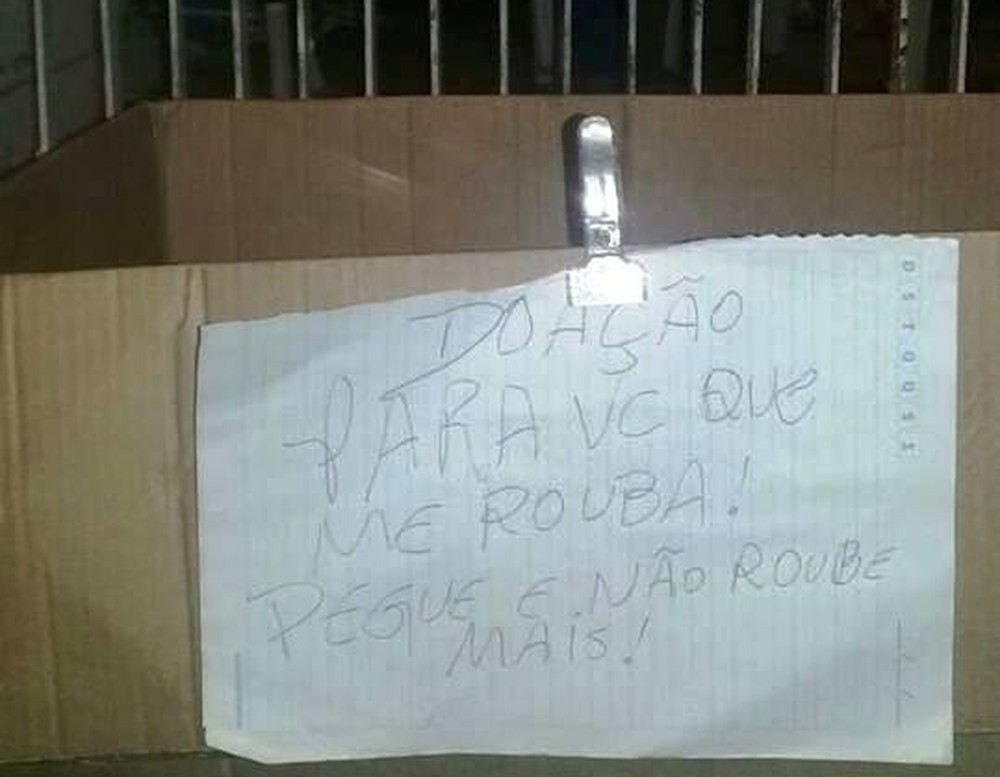 DOAÇÃO
PARA VC QUE
ME ROUBA!
PEGUE E NÃO ROUBE
MAIS!